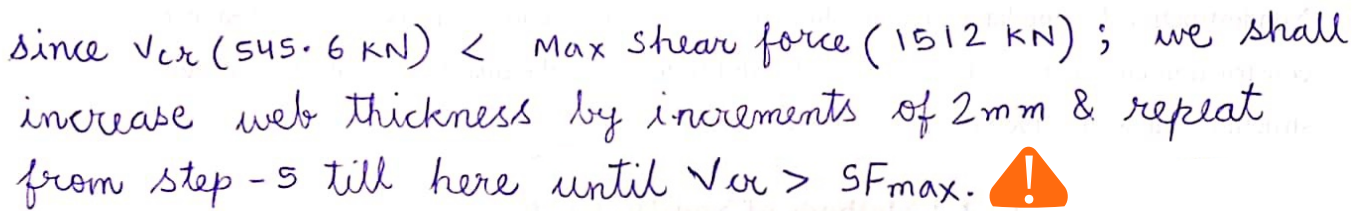 since Vcr (545.6 KN) < Max shear force (1512 KN) ; we shall
increase web thickness by increments of 2mm & repeat
from step - 5 till here until Vcr > SFmax. !